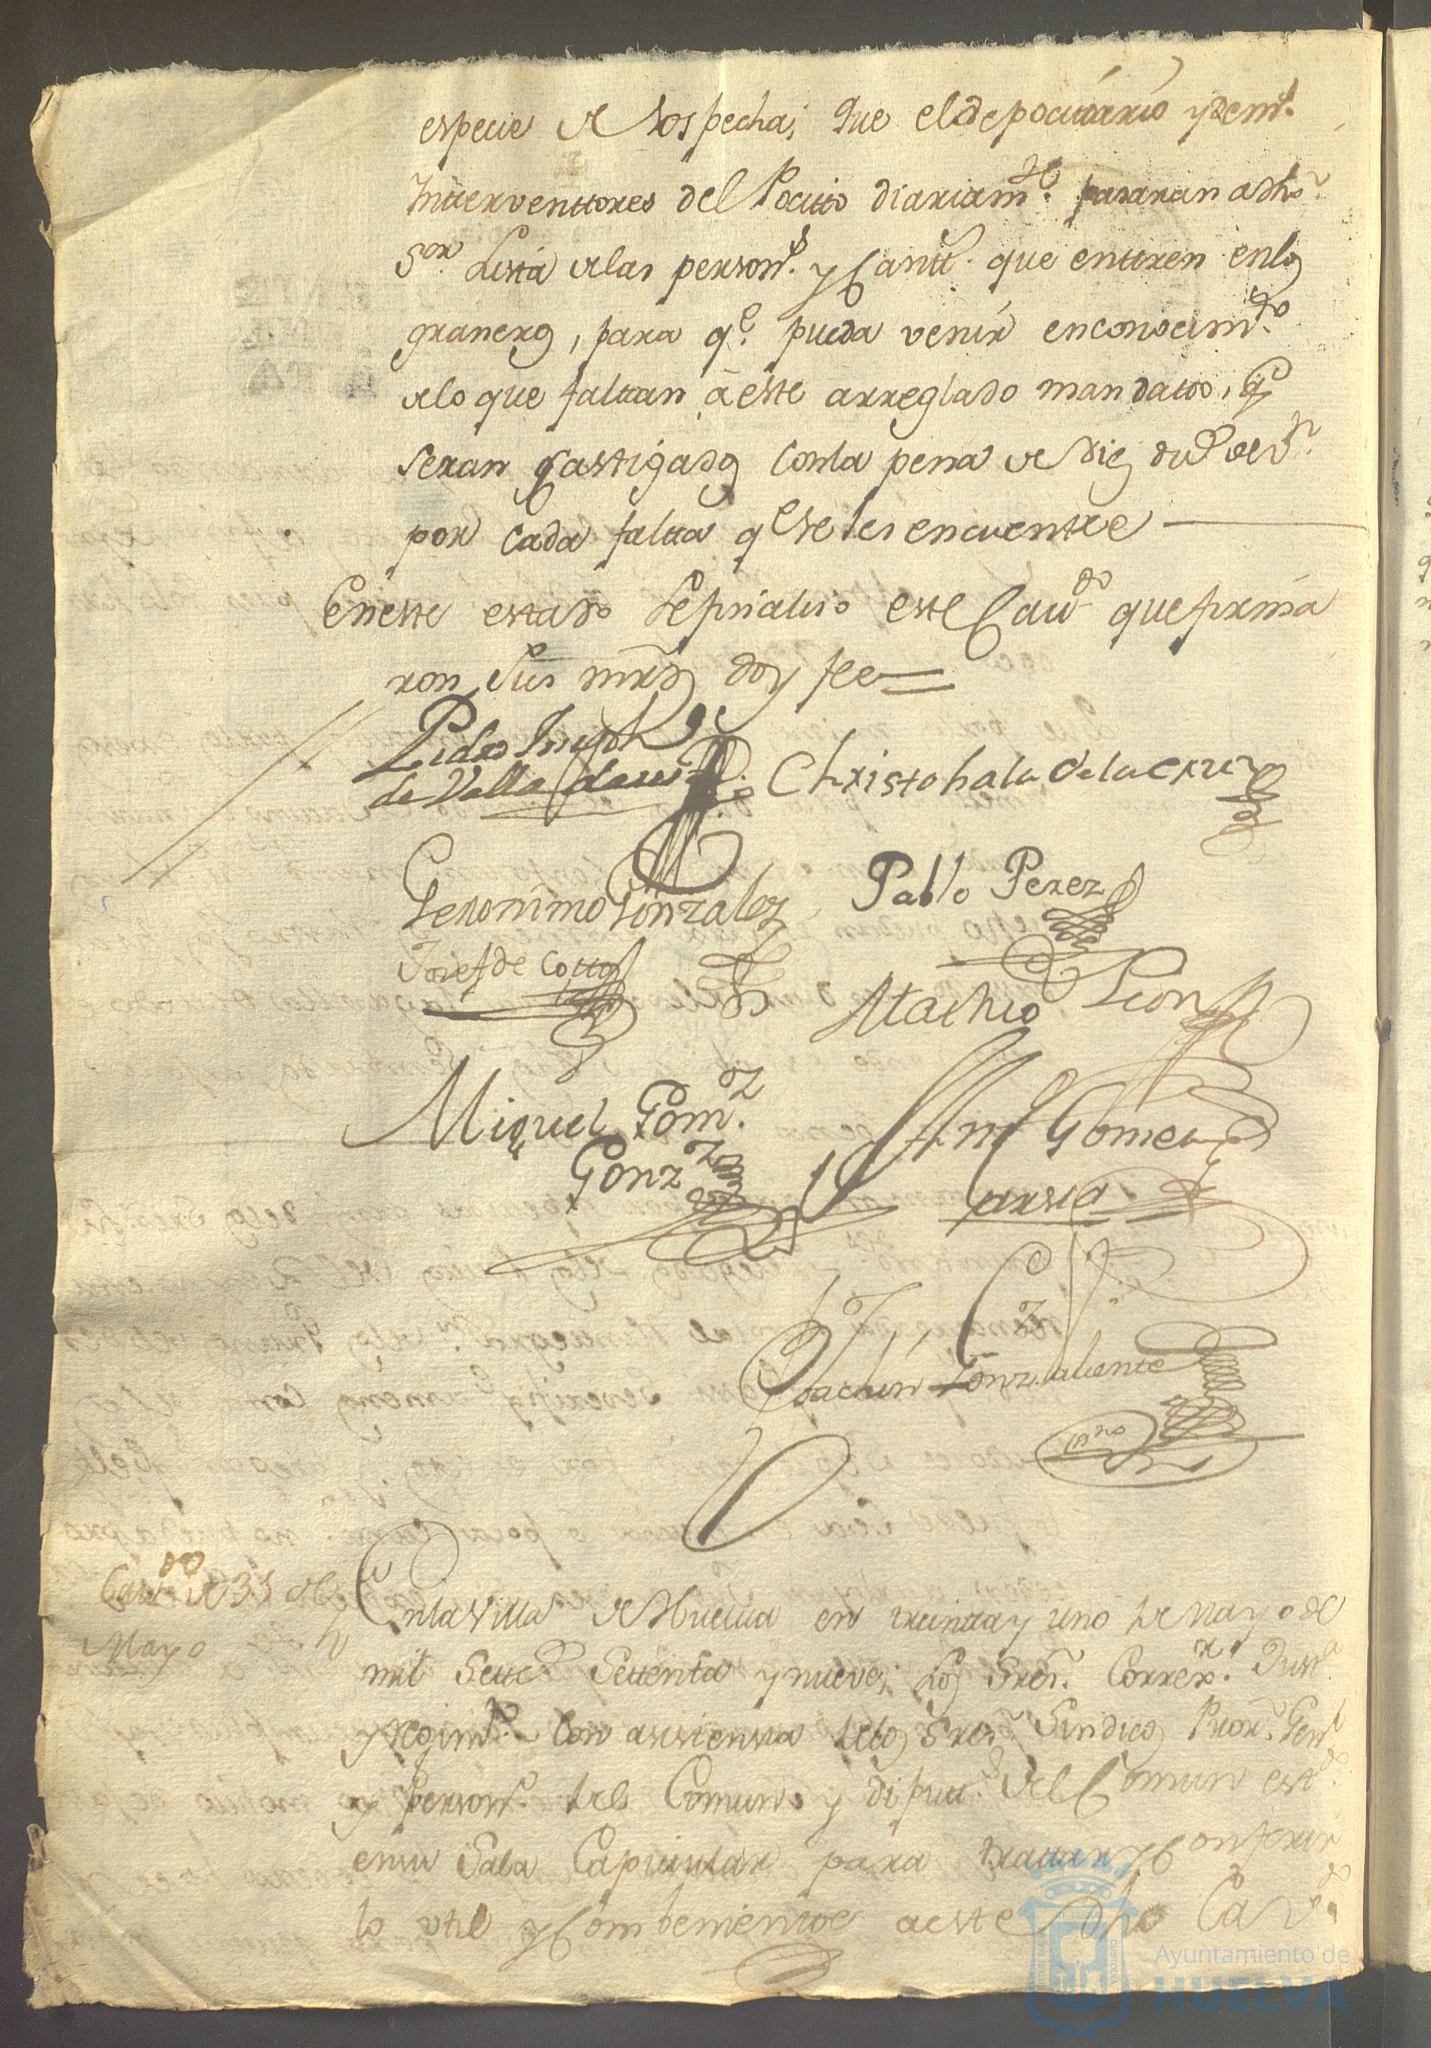 especie de sospecha; que el depocitario y dem.s
Interventtores del Pocitto diariam.te pasaran a dho
S.or Lista de las person.s y Cantt.s que enttren en los
graneros, para q.e pueda venir en conocim.to
de lo que faltan à este arreglado mandatto, q.e
seran Castigados con la pena de diez du.s de v.n
por cada faltta q.e se les encuentre
En este estado se finalisó este Cav.do que firma
ron sus mrds doy fee
Pedro Joseph
de Valladares
Christobal de la Cruz
Geronimo Gonzalez
Pablo Perez
Josef de Cotto
Macho Leon
Miguel Gom.z
Gonz.z
Ant Gomez
Garsia
Joachin Gonz.z Valiente
ss.no
Cav.do de 31 de
Mayo
En la Villa de Huelva en treinta y uno de Mayo de
mil Settec.s Settenta y nueve; los Sres. Correx.r Just.a
y Regim.to con asistensia de los Sres. Sindicos Pror. Gen.l
y Person.o del Comun, y diputt.s del Comun est.do
en su Sala Capitular para trattar y Conferir
lo util y Combeniente a este dho Cav.do
Ayuntamiento de
HUELVA